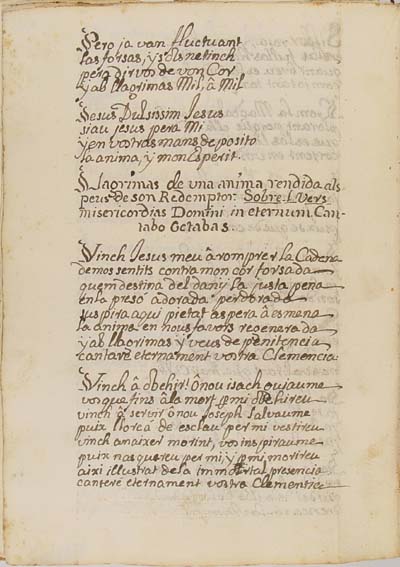 Pero ja van fluctuant
las forsas, y sols ne tinch
pera dirvos de von Cor
y ab llagrimas Mil, â Mil.
Jesus Dulsissim Jesus
siau Jesus pera Mi
y en vostras mans deposito
la anima, y mon Esperit.
Llagrimas de una anima rendida als
peus de son Redemptor. Sobre l Vers
misericordias Domini in eternum Can-
tabo Octabas.
Vinch Jesus meu â romprer la Cadena
demos sentits contra mon cor forsada
quem destina del dany la justa pena
en la presó adorada per dorada
suspira aqui pietat aspera â esmena
la anima en nous favors regenerada
y ab llacrimas y veus de penitencia
cantaré eternament vostra Clemencia.
Vinch â obehir! Ô nou isach guiaume
vos que fins â la mort p mi obehireu
vinch â servir ô nou Joseph salvaume
puix llorca de esclau per mi vestireu
vinch a naixer morint, vos inspiraume
puix nasquereu per mi y p mi morireu
aixi illustrat de la immortal presencia
cantere eternament vostra Clemensia